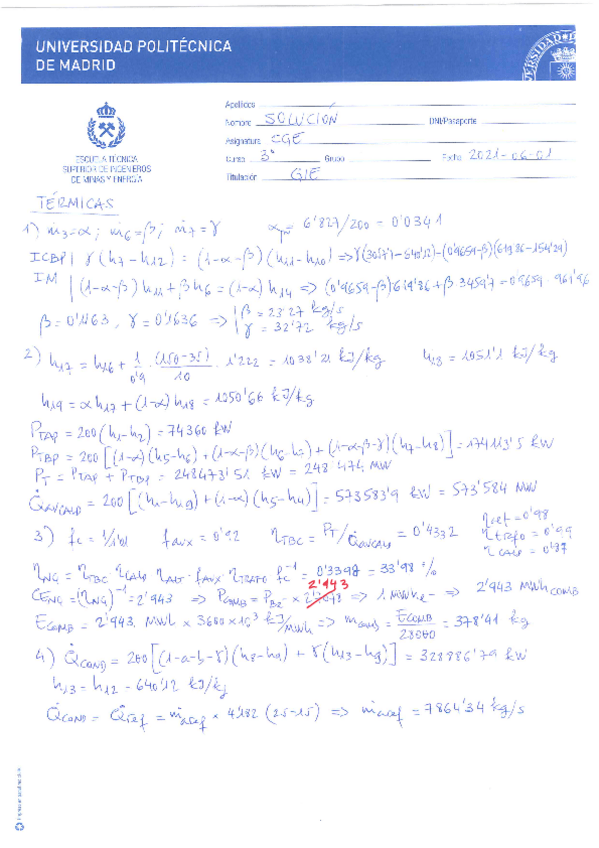 UNIVERSIDAD POLITÉCNICA
DE MADRID
Apellidos
Nombre SOLUCIÓN DNI/Pasaporte
Asignatura CGE
Curso 3º Grupo Fecha 2021-06-01
Titulación GIE
ESCUELA TÉCNICA
SUPERIOR DE INGENIEROS
DE MINAS Y ENERGÍA
TÉRMICAS
1) ṁ3=α; ṁ6=β; ṁ7=γ α = 6'827/200 = 0'0341
ICBP | γ(h7-h12) = (1-α-β)(h11-h10) => γ(3047'7-640'12)=(0'9659-β)(619'86-154'29)
IM | (1-α-β)h11+βh6 = (1-α)h14 => (0'9659-β)619'86+β·3459'7=0'9659·961'96
β=0'1163, γ=0'1636 => | β = 23'27 kg/s
γ = 32'72 kg/s
2) h17 = h16 + 1/0'9 · (150-35)/10 · 1'222 = 1038'21 kJ/kg h18 = 1051'1 kJ/kg
h19 = αh17+(1-α)h18 = 1050'66 kJ/kg
PTAP = 200(h1-h2) = 74360 kW
PTBP = 200[(1-α)(h5-h6)+(1-α-β)(h6-h7)+(1-α-β-γ)(h7-h8)] = 174113'5 kW
PT = PTAP + PTBP = 248473'51 kW = 248'474 MW
= 200[(h1-h19)+(1-α)(h5-h4)] = 573583'9 kW = 573'584 MW
3) fc = 1/1'01 faux = 0'92 ηTBC = PT/ = 0'4332 = 0'98
ηtrafo = 0'99
ηcald = 0'87
ηNG = ηTBC ηCALD ηALT · faux ηTRAFO fc⁻¹ = 0'3398 = 33'98 %
2'943
CENG = (ηNG)⁻¹ = 2'943 => PCOMB = × => 1 MWh => 2'943 MWhCOMB
ECOMB = 2'943 MWh × 3600×10³ kJ/MWh => mcomb = ECOMB/28000 = 378'41 kg
4) Q̇COND = 200[(1-a-b-γ)(h8-h9)+γ(h13-h9)] = 328886'79 kW
h13 = h12 = 640'12 kJ/kg
Q̇COND = Q̇ref = ṁaref × 4'182 (25-15) => ṁaref = 7864'34 kg/s